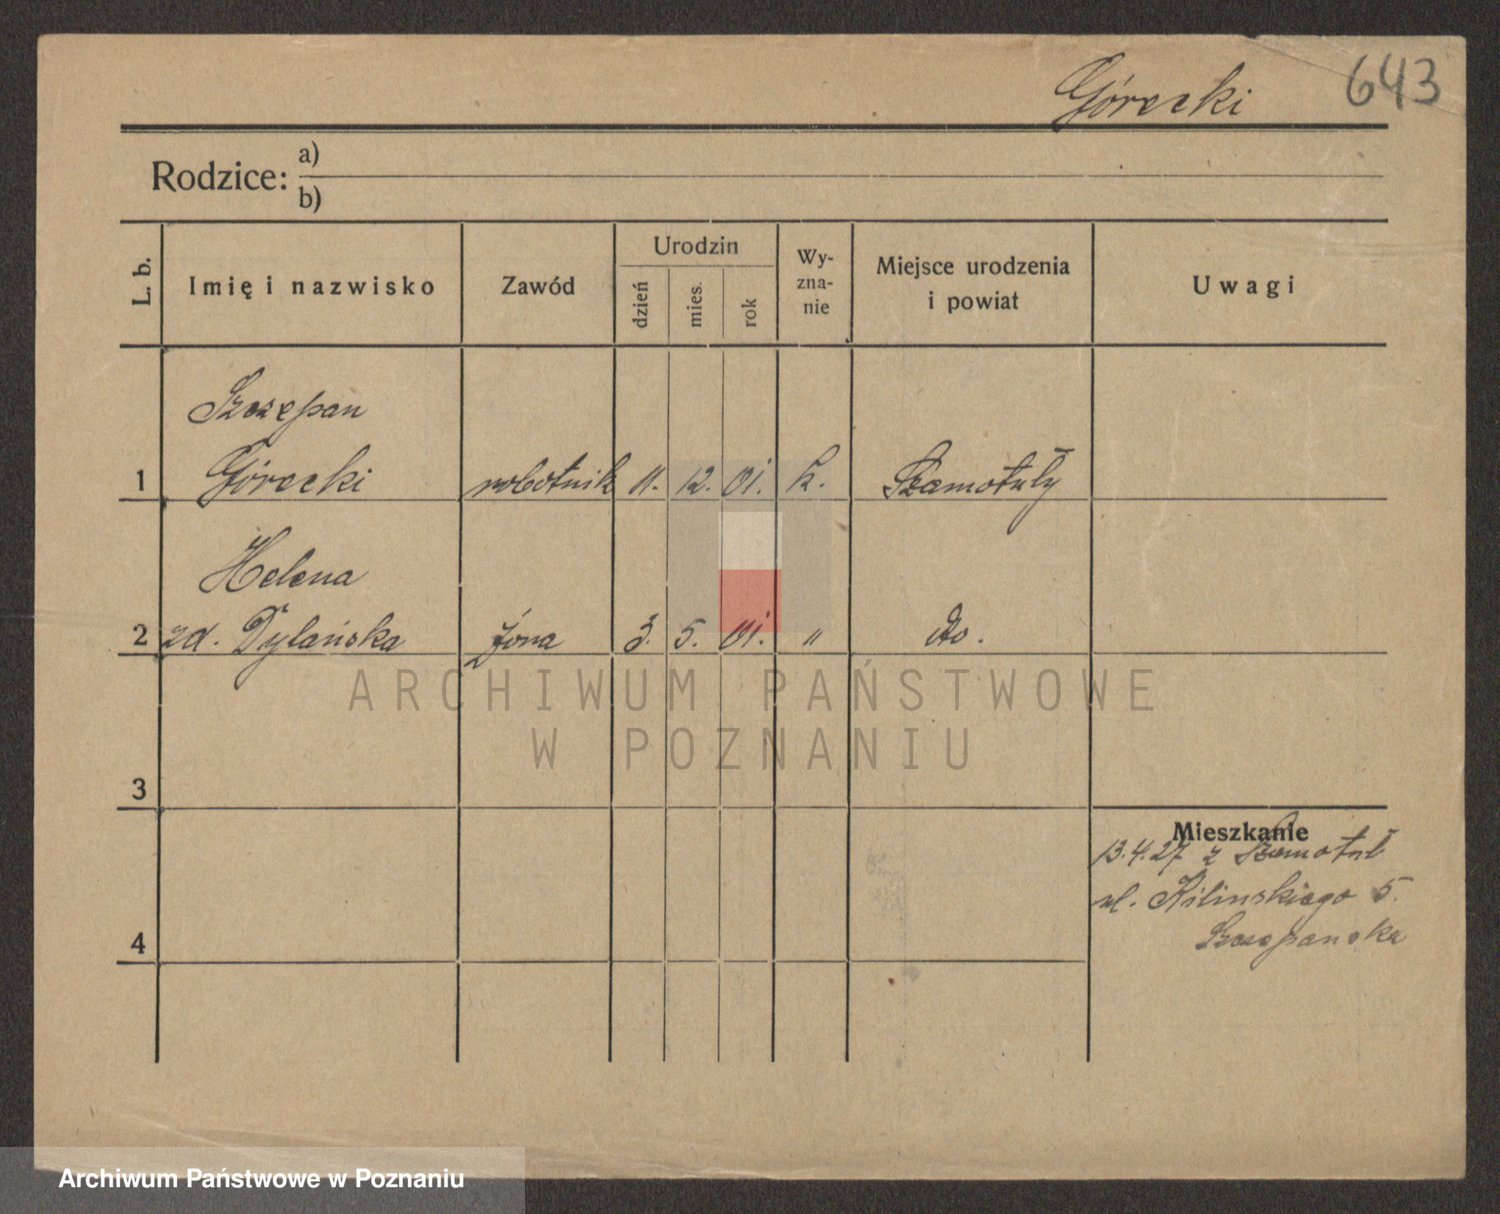 Górecki 643
Rodzice: a)
b)
L. b. Imię i nazwisko Zawód Urodzin dzień mies. rok Wy-zna-nie Miejsce urodzenia i powiat Uwagi
Szczepan
1 Górecki robotnik 11. 12. 01. k. Szamotuły
Helena
2 zd. Dylańska żona 3. 5. 01. " do.
ARCHIWUM PAŃSTWOWE
W POZNANIU
3
Mieszkanie
13.4.27 z Szamotuł
ul. Kilinskiego 5.
4
Archiwum Państwowe w Poznaniu